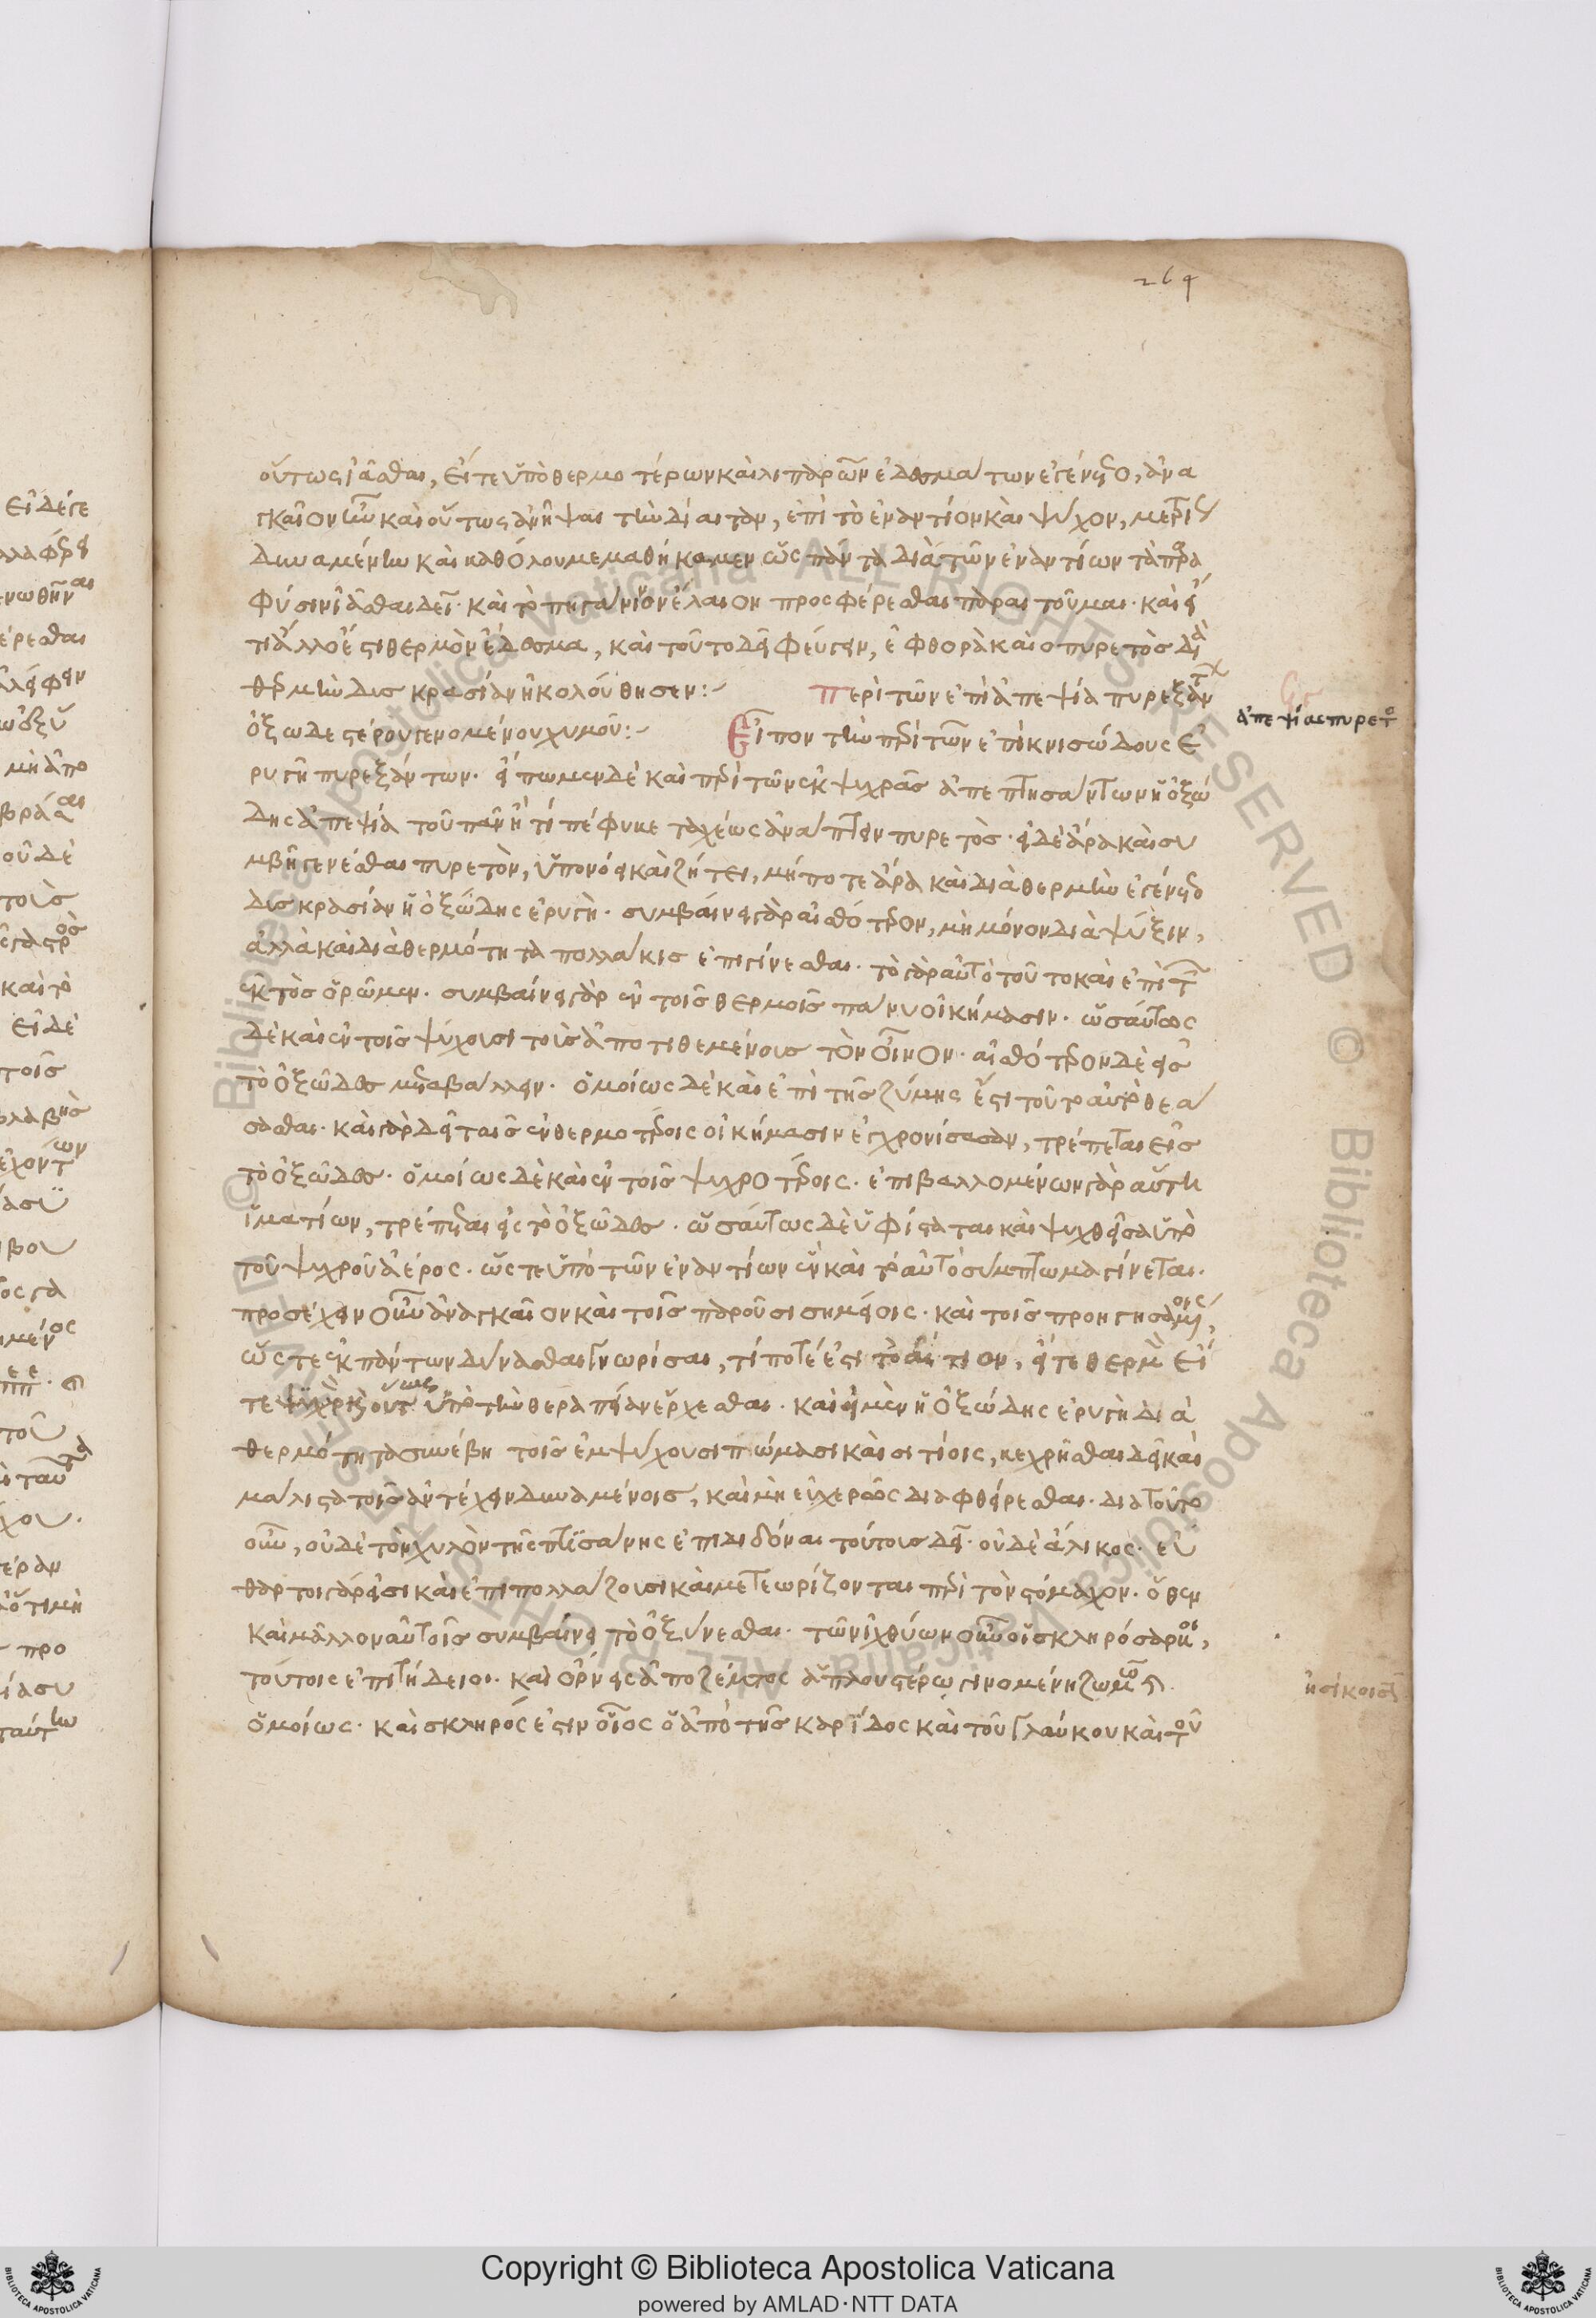 264
οὕτως ἰᾶσθαι, εἴτε ὑπὸ θερμοτέρων καὶ λιπαρῶν ἐδεσμάτων ἐγένετο, ἀνα
γκαῖον οὖν καὶ οὕτως ἀμεῖψαι τὴν δίαιταν, ἐπὶ τὸ ἐναντίον καὶ ψῦχον,
δυναμένην καὶ καθόλου μεμαθήκαμεν ὡς πάντα διὰ τῶν ἐναντίων τὰ παρὰ
φύσιν ἰᾶσθαι δεῖ. καὶ τὸ πηγάνινον ἔλαιον προσφέρεσθαι παραιτοῦμαι. καὶ εἴ
τι ἄλλο ἐστὶ θερμὸν ἔδεσμα, καὶ τοῦτο δεῖ φεύγειν, ἐφ φθορὰ καὶ ὁ πυρετὸς διὰ
θερμὴν δισκρασίαν ἠκολούθησεν:-
περὶ τῶν ἐπὶ ἀπεψία πυρεξάντ
ὀξωδεστέρου γενομένου χυμοῦ:-
ἀπεψίας πυρετο
Εἶπον τὴν περὶ τῶν ἐπὶ κνισώδους ἐ
ρυγῆ πυρεξάντων. εἴπωμεν δὲ καὶ περὶ τῶν ἐκ ψυχρᾶς ἀπεπτησάντων ἡ ὀξώ
δης ἀπεψία τοῦ πανῆ τί πέφυκε ταχέως ἀνάπτειν πυρετὸς. εἰ δὲ ἄρα καὶ συ
μβῆ γενέσθαι πυρετὸν, ὑπονόει καὶ ζήτει, μήποτε ἄρα καὶ διὰ θερμὴν ἐγένετο
δισκρασίαν ἡ ὀξώδης ἐρυγὴ. συμβαίνει γὰρ αἰσθότερον, μὴ μόνον διὰ ψύξιν,
ἀλλὰ καὶ διὰ θερμότητα πολλάκις ἐπιγίνεσθαι. τὸ γὰρ αὐτὸ τοῦτο καὶ ἐπὶ τ
ἐκτὸς ὁρῶμεν. συμβαίνει γὰρ ἐν τοῖς θερμοῖς πάνυ οἰκήμασιν. ὡσαύτως
δὲ καὶ ἐν τοῖς ψύχουσι τοῖς ἀποτιθεμένοις τὸν οἶνον. αἰσθότερον δὲ εἰς
τὸ ὀξῶδες μεταβάλλειν. ὁμοίως δὲ καὶ ἐπὶ τῆς ζύμης ἔστι τοῦτο αὐτὸ θεά
σασθαι. καὶ γὰρ δεῖ ταῖς ἐν θερμοτέροις οἰκήμασιν ἐγχρονίσασαν, τρέπεται εἰς
τὸ ὀξῶδες. ὁμοίως δὲ καὶ ἐν τοῖς ψυχροτέροις. ἐπιβαλλομένων γὰρ αὐτῆ
ἱματίων, τρέπεται εἰς τὸ ὀξῶδες. ὡσαύτως δὲ ὑφίσταται καὶ ψυχθεῖσα ὑπὸ
τοῦ ψυχροῦ ἀέρος. ὥστε ὑπὸ τῶν ἐναντίων ἓν καὶ τὸ αὐτὸ σύμπτωμα γίνεται.
προσέχειν οὖν ἀναγκαῖον καὶ τοῖς παροῦσι σημείοις. καὶ τοῖς προηγησαμένοις,
ὥστε ἐκ πάντων δύνασθαι γνωρίσαι, τί ποτέ ἐστι τὸ αἴτιον, εἴτε θερμὸν εἴ
τε ψυχρὸν οὕτως ὑπὸ τὴν θεραπείαν ἔρχεσθαι. καὶ εἰ μὲν ἡ ὀξώδης ἐρυγὴ διὰ
θερμότητα συνέβη τοῖς ἐμψύχουσι πώμασι καὶ σιτίοις, κεχρῆσθαι δεῖ καὶ
μάλιστα τοῖς ἀντέχειν δυναμένοις, καὶ μὴ εὐχερῶς διαφθείρεσθαι. διατοῦτο
οὖν, οὐδὲ τὸν χυλὸν τῆς πτισάνης ἐπιδιδόναι τούτοις δεῖ. οὐδὲ ἄλικος. εὔ
θαρτοι γάρ εἰσι καὶ ἐπιπολλάζουσι καὶ μετεωρίζονται περὶ τὸν στόμαχον. ὅθεν
καὶ μᾶλλον αὐτοῖς συμβαίνει τὸ ὀξύνεσθαι. τῶν ἰχθύων οὖν οἱ σκληρόσαρκοι,
τούτοις ἐπιτήδειοι. καὶ ὀρνὶς ἀπὸ ζέματος ἁπλουστέρω γινομένη ζωμῶ.
ὁμοίως. καὶ σκληρός ἐστιν οἷος ὁ ἀπὸ τῆς καρίδος καὶ τοῦ γλαύκου καὶ τοῦ
Copyright © Biblioteca Apostolica Vaticana
powered by AMLAD·NTT DATA